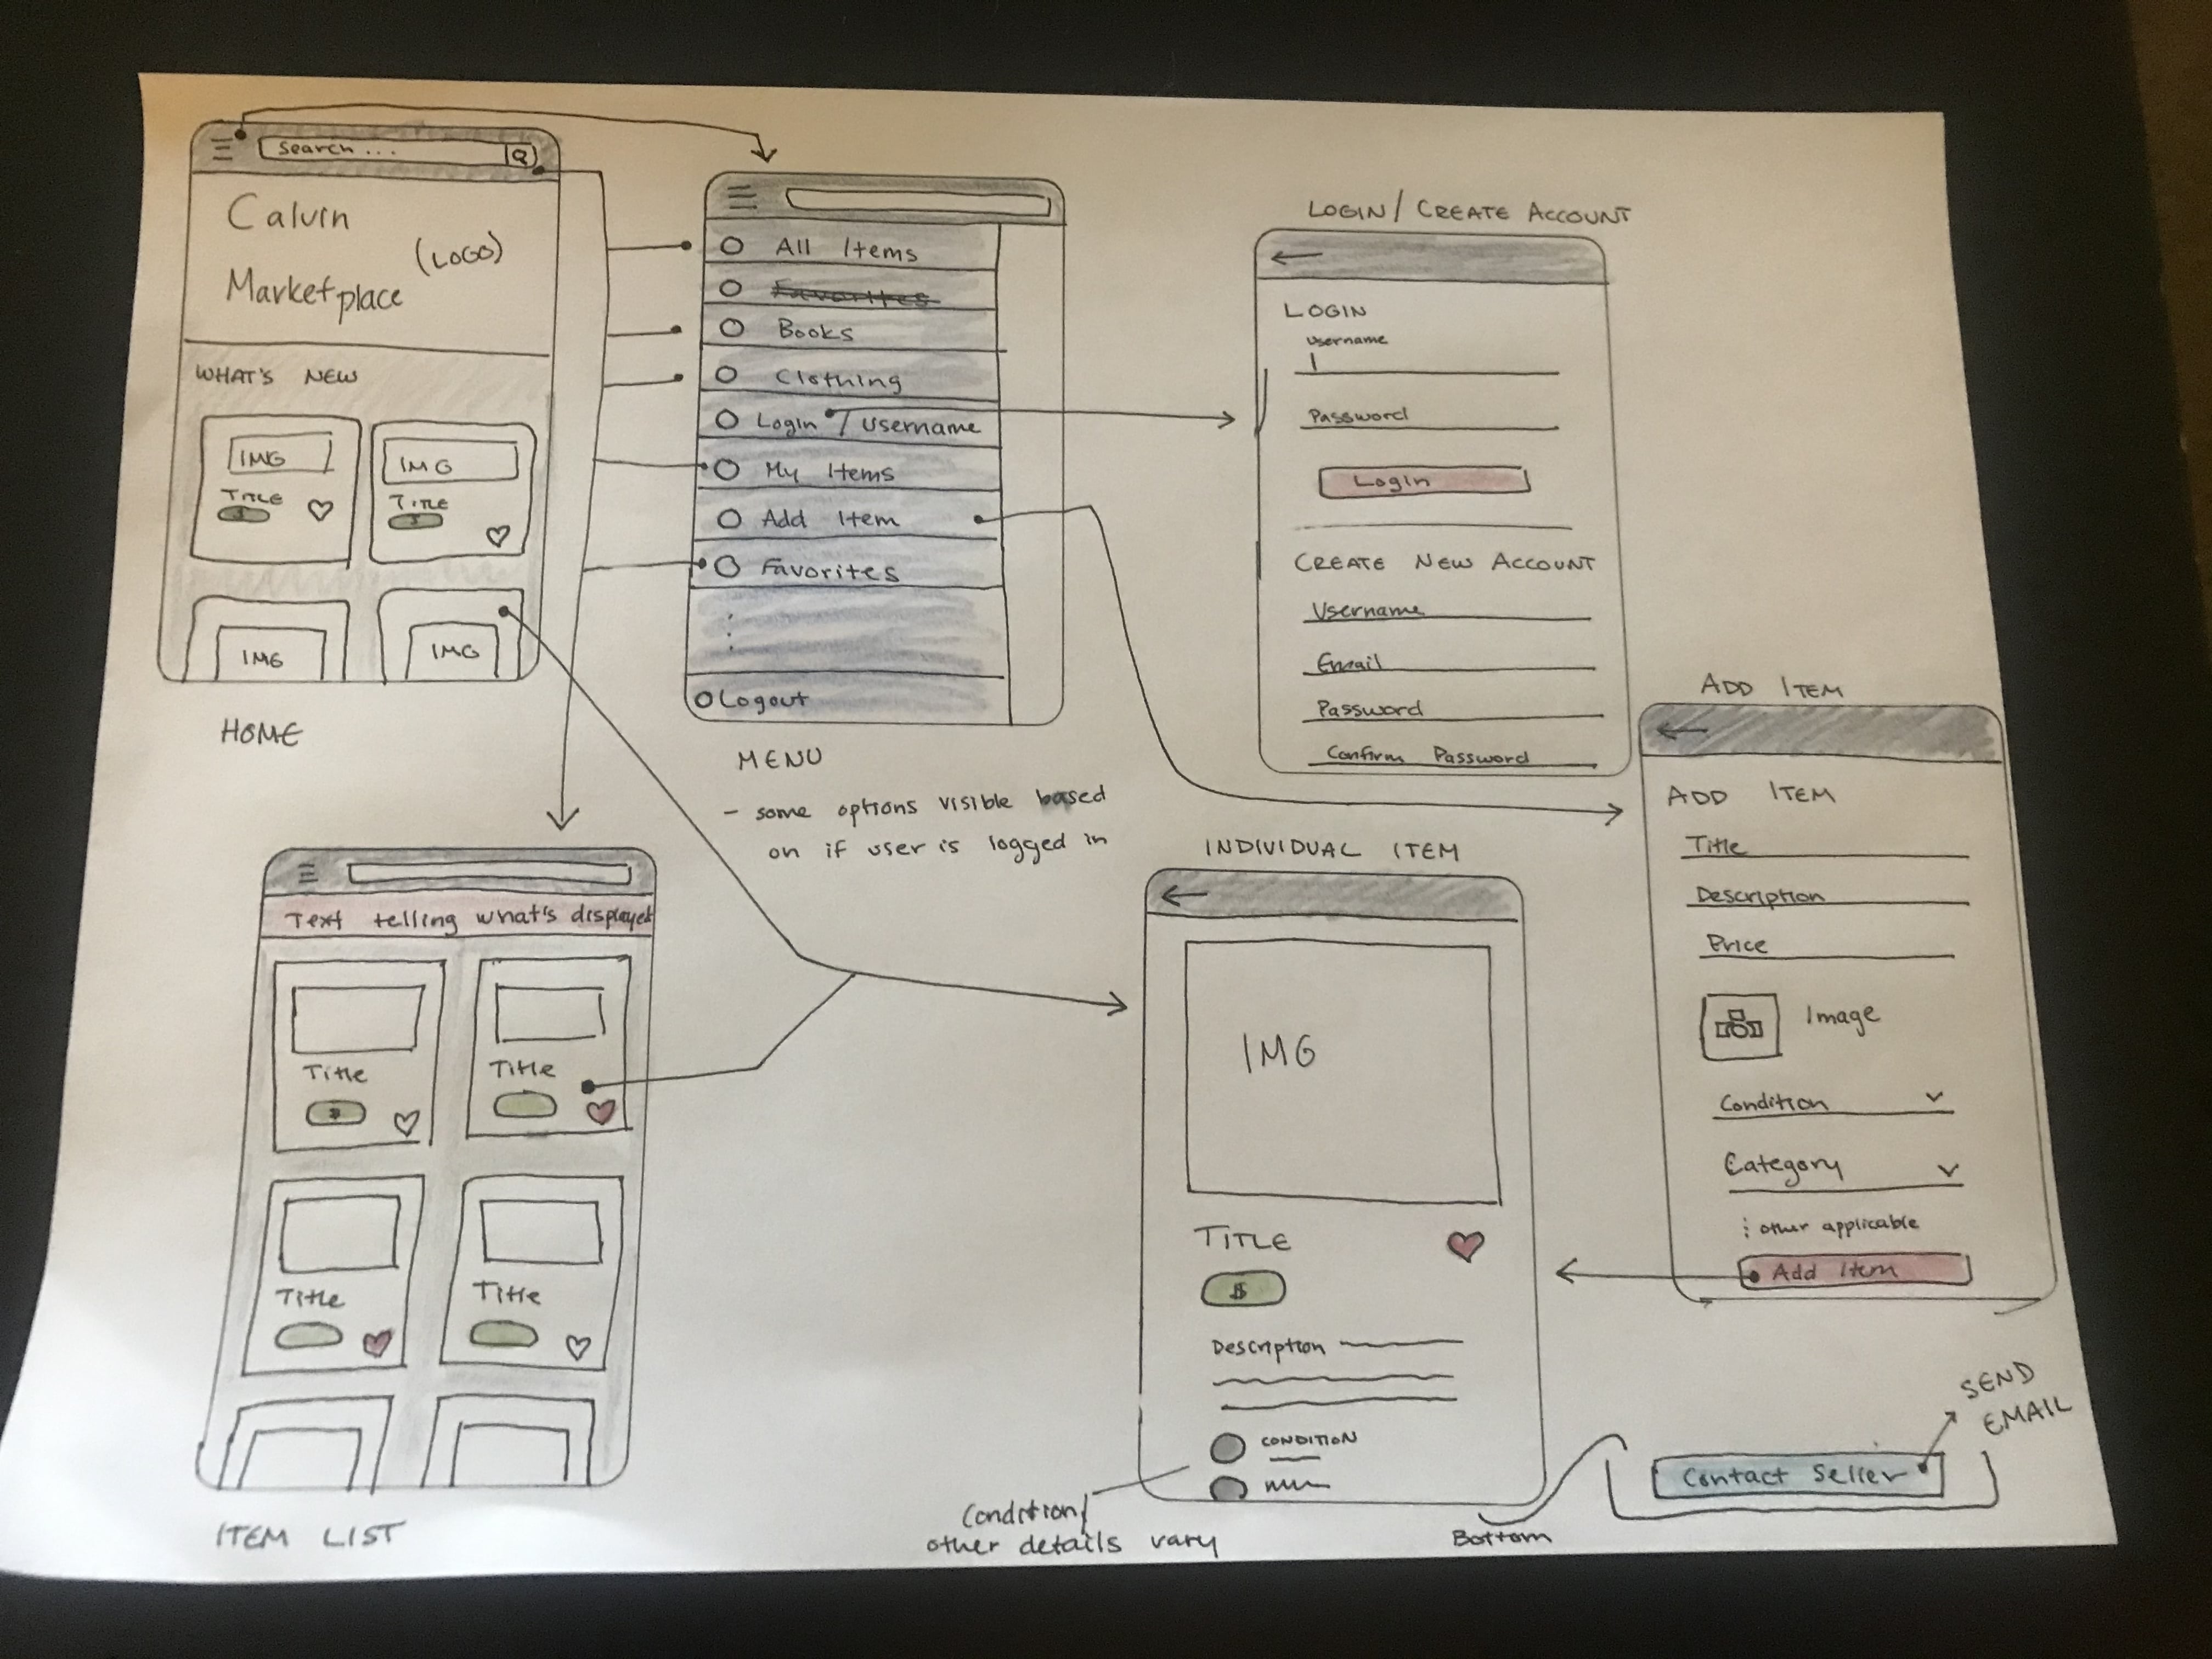 Search ...
Calvin
(LOGO)
Marketplace
WHAT'S NEW
IMG
TITLE
$
IMG
TITLE
$
IMG
IMG
HOME
All Items
Favorites
Books
Clothing
Login / Username
My Items
Add Item
Favorites
Logout
MENU
- some options visible based
on if user is logged in
LOGIN / CREATE ACCOUNT
LOGIN
Username
Password
Login
CREATE NEW ACCOUNT
Username
Email
Password
Confirm Password
ADD ITEM
ADD ITEM
Title
Description
Price
Image
Condition
Category
: other applicable
Add Item
Text telling what's displayed
Title
$
Title
Title
Title
ITEM LIST
INDIVIDUAL ITEM
IMG
TITLE
$
Description
CONDITION
Condition/
other details vary
Bottom
Contact Seller
SEND
EMAIL